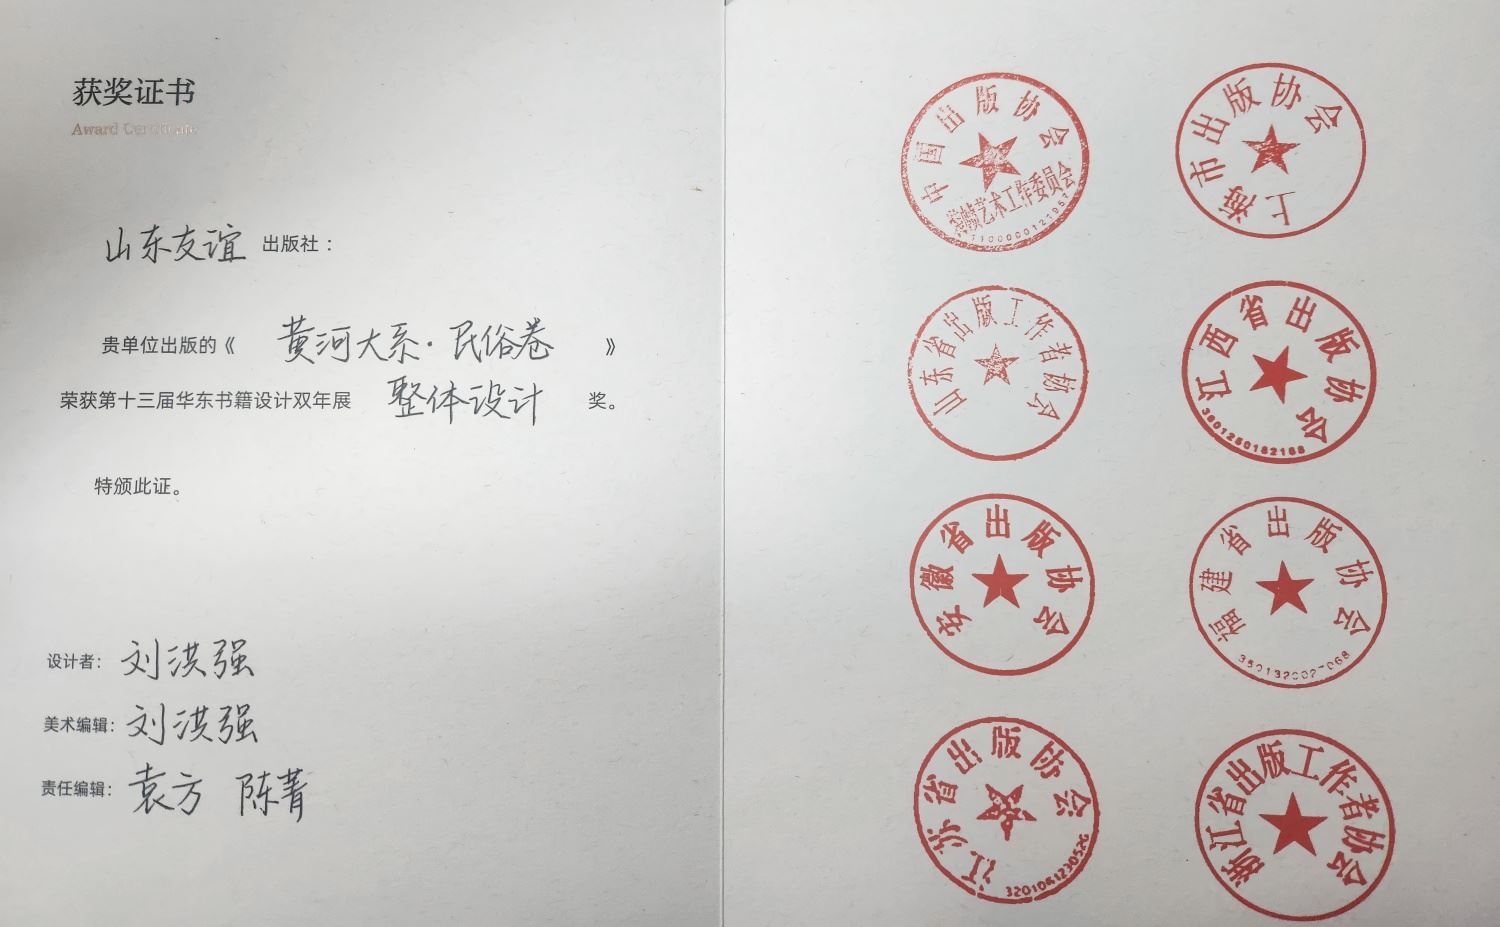 获奖证书
Award Certificate
山东友谊 出版社：
贵单位出版的《 黄河大系·民俗卷 》
荣获第十三届华东书籍设计双年展 整体设计 奖。
特颁此证。
设计者：刘洪强
美术编辑：刘洪强
责任编辑：袁方 陈菁
中国出版协会
装帧艺术工作委员会
上海市出版协会
山东省出版工作者协会
江西省出版协会
安徽省出版协会
福建省出版协会
江苏省出版协会
浙江省出版工作者协会